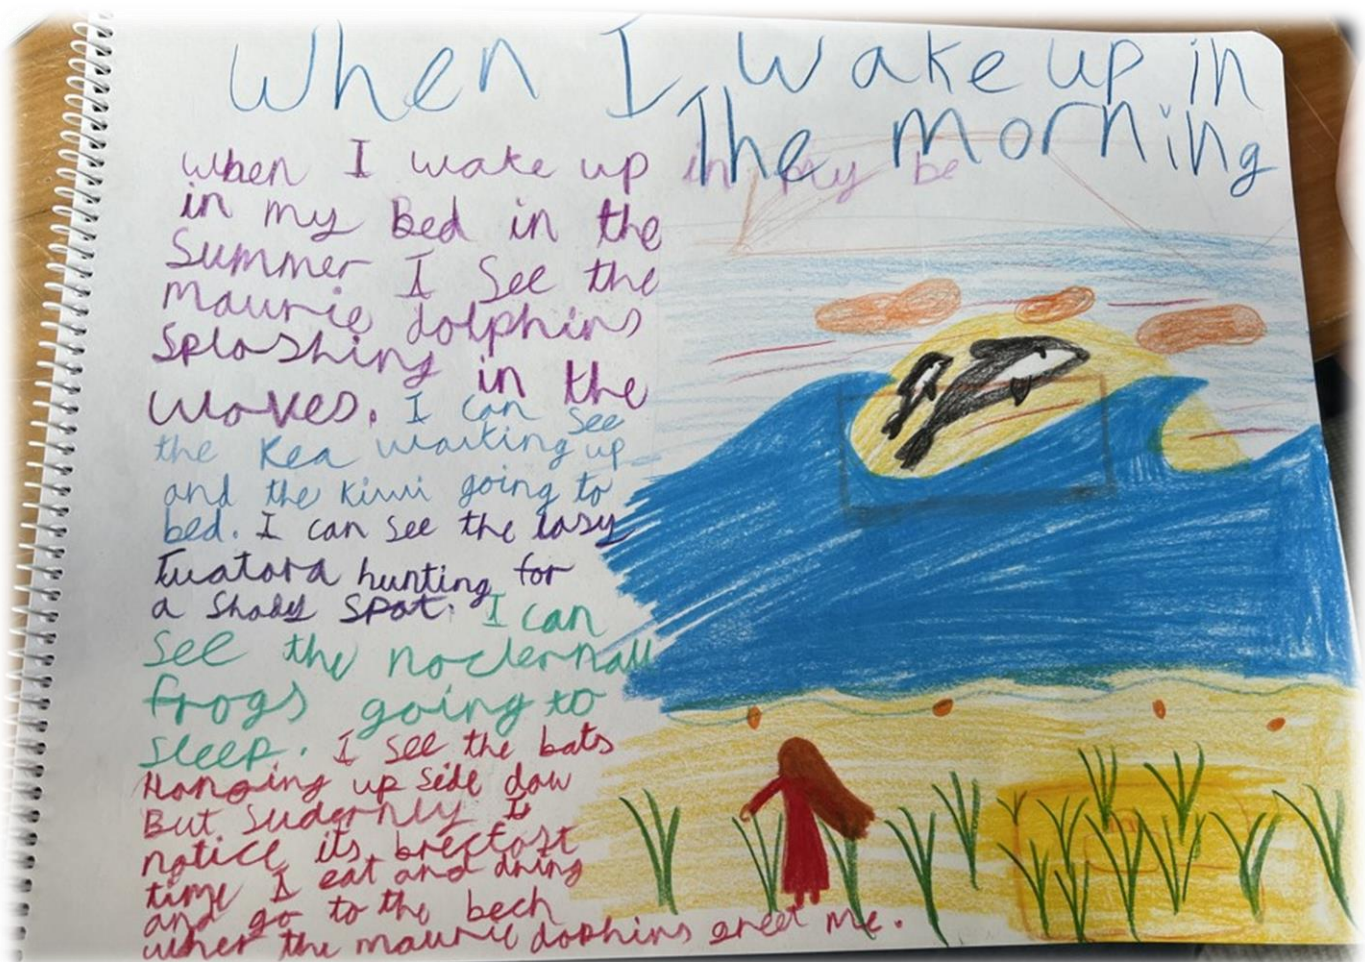 When I wake up in
The morning
when I wake up in my be
in my Bed in the
Summer I See the
maurie dolphins
Splashing in the
waves. I can see
the Kea waiking up
and the kiwi going to
bed. I can see the lasy
Tuatara hunting for
a Shady Spot. I can
See the noclernall
frogs going to
sleep. I see the bats
Hanging up side dow
But sudernly I
notice its brecfast
time I eat and dring
and go to the bech
wher the maurie dophins greet me.